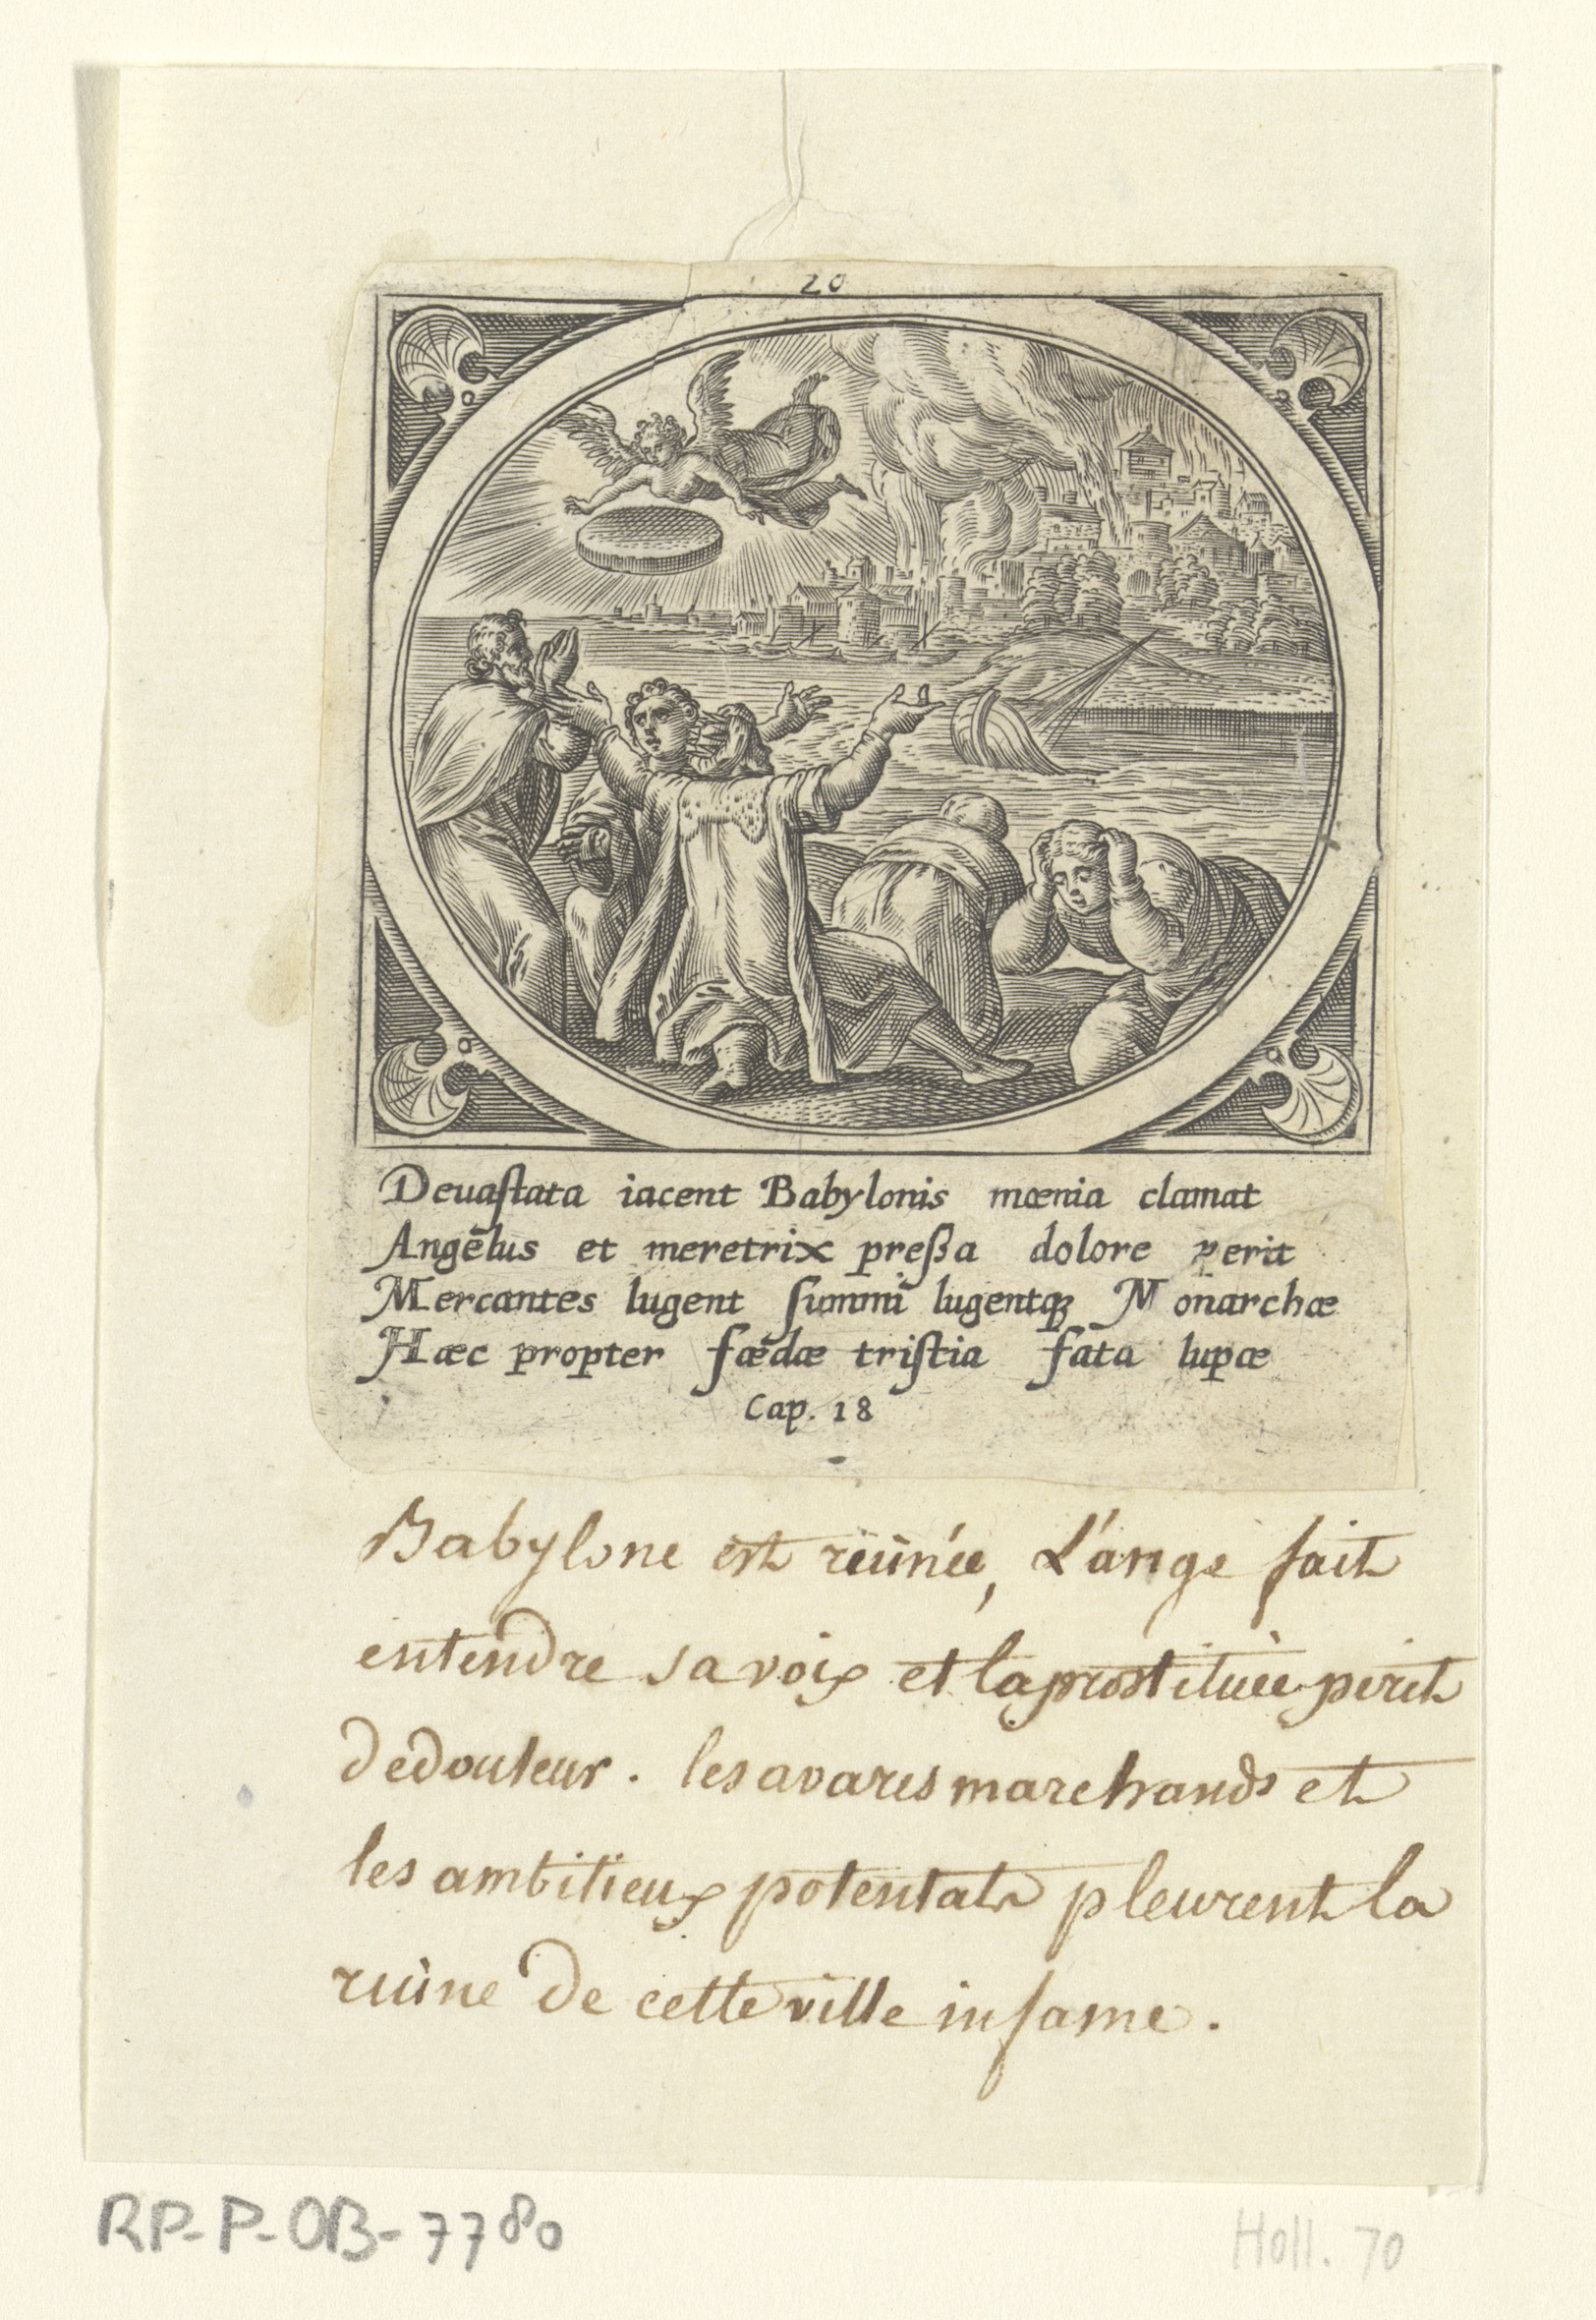 20
Deuastata iacent Babylonis mœnia clamat
Angelus et meretrix preßa dolore perit
Mercantes lugent summi lugentq3 Monarchæ
Hæc propter fœdæ tristia fata lupæ
Cap. 18
Babylone est ruinée, L'ange fait
entendre sa voix et la prostituée perit
de douleur. les avares marchands et
les ambitieux potentats pleurent la
ruine de cette ville infame.
RP-P-OB-7780
Holl. 70